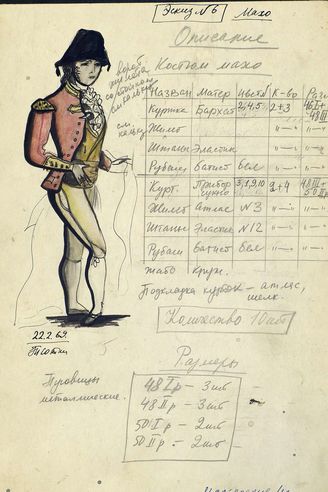 Эскиз № 6 Махо
Описание
Костюм махо
Назван Матер Цветн К-во Разм
Куртка Бархат 2,4,5 2+3 46I+ 48III
Жилет —"— —"—
Штаны Эластик —"— —"—
Рубашка батист бел —"— —"—
Курт. Прибор сукно 3,1,9,10 2+4 48III+ 50IIр
Жилет атлас №3 —"— —"—
Штаны Эластик №12 —"— —"—
Рубаш батист бел —"— —"—
жабо круж.
Подкладка курток – атлас, шелк.
Количество 10 шт
Размеры
48 I р – 3 шт
48 II р – 3 шт
50 I р – 2 шт
50 II р – 2 шт
ворот
см
22.2.69.
Пуговицы
металлические.